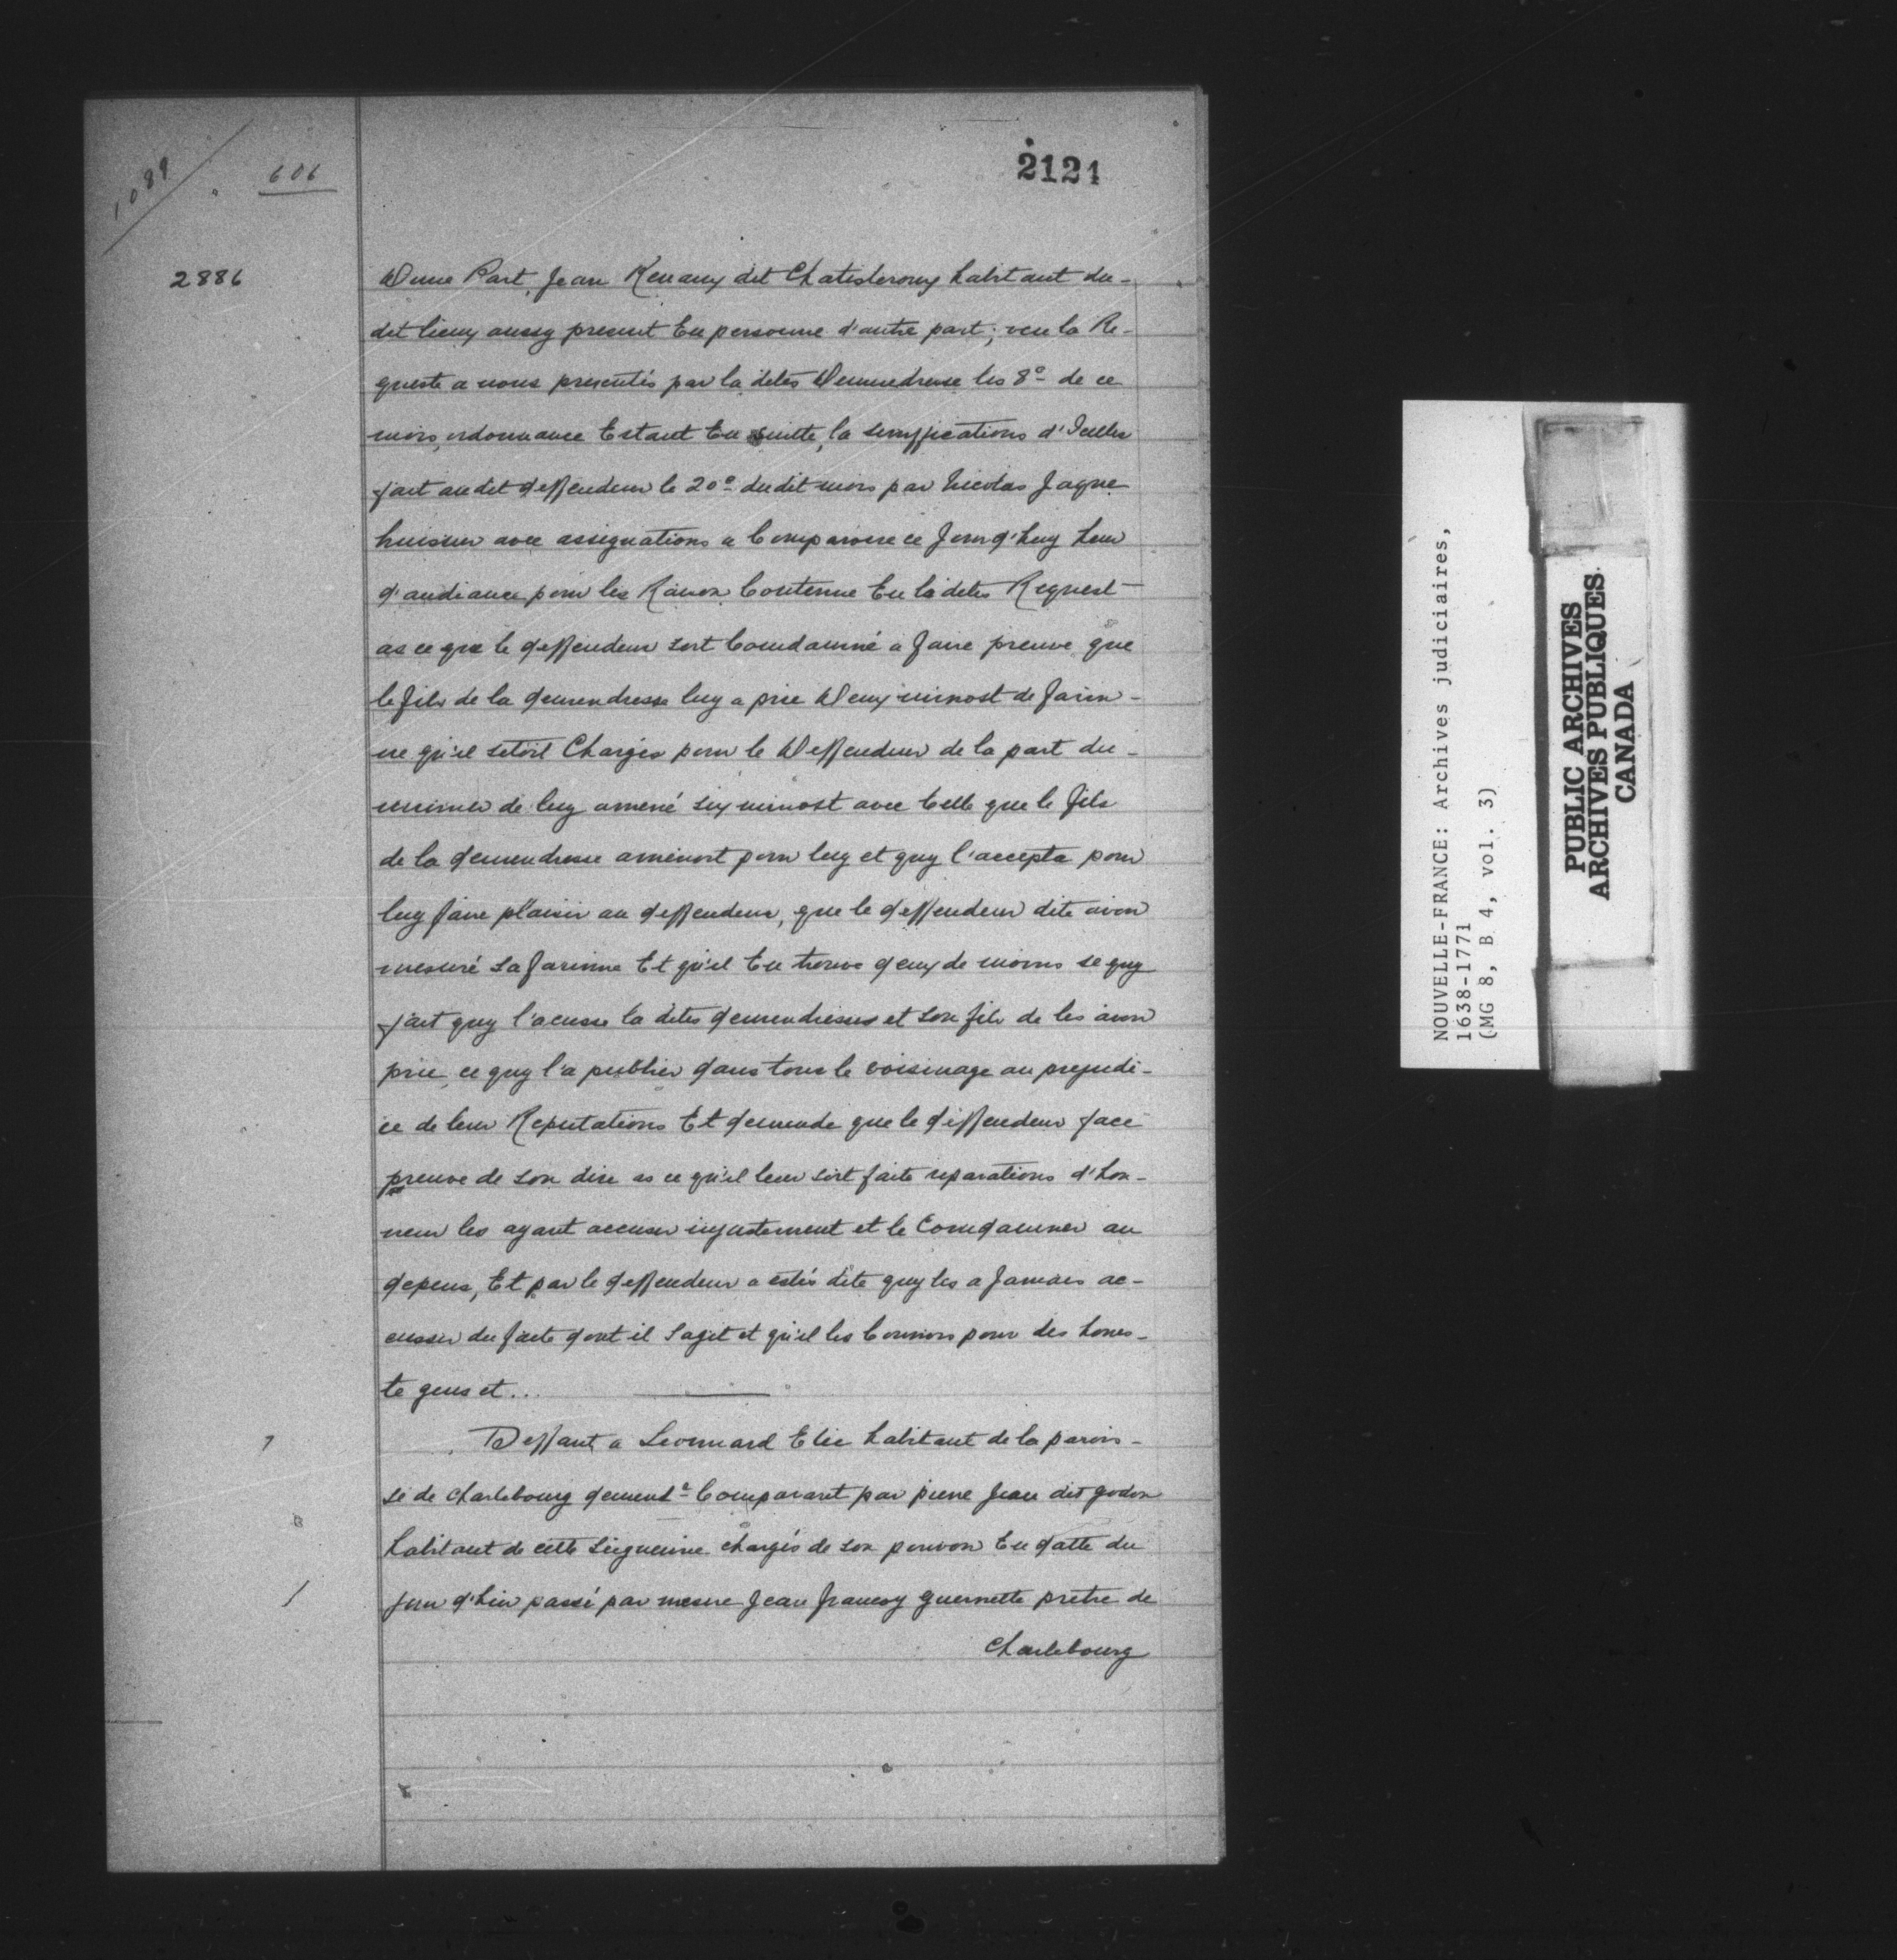 1089
606
2121
2886
D'une Part, Jean Renaux dit Chatisleroux habitant du-
dit lieux aussy present En personne d'autre part; veu la Re-
queste a nous presentés par la dites Demendresse les 8e de ce
mois, ordonnance Estant En suitte, la siniffications d'Icelles
fait audit deffendeur le 20e dudit mois par Nicolas Jaque
huissier avec assignations a Comparoire ce Jourd'huy heur
d'audiance pour les Raison Contenue En la dites Request
as ce que le deffendeur soit Comdamné a faire preuve que
le fils de la demendresse luy a prie Deux minost de farin-
ne qu'il setoit Chargés pour le Deffendeur de la part du
munier de luy amené six minost avec Celle que le fils
de la demendresse amenoit pour luy et quy l'accepta pour
luy faire plaisir au deffendeur, que le deffendeur dite avoir
mesuré sa farinne Et qu'il En trouve deux de moins se quy
fait quy l'acusse la dites demendresses et son fils de les avoir
prie, ce quy l'a publier dans tous le voisinage au prejudi-
ce de leur Reputations Et demende que le deffendeur face
preuve de son dire as ce qu'il leur soit faite reparations d'hon-
neur les ayant accuser injustement et le Comdamner au
depens, Et par le deffendeur a estés dite quy les a Jamais ac-
cusser du faite dont il Sagit et qu'il les Connois pour des hones-
te gens et...
Deffaut a Leonnard Elie habitant de la parois-
se de Charlebourg demendr Comparant par pierre Jean dit godon
habitant de cette Siegneurie chargés de son pouvoir En datte du
jour d'hier passé par mesire Jean francoy guernette pretre de
Charlebourg
NOUVELLE-FRANCE: Archives judiciaires,
1638-1771
(MG 8, B 4, vol. 3)
PUBLIC ARCHIVES
ARCHIVES PUBLIQUES
CANADA